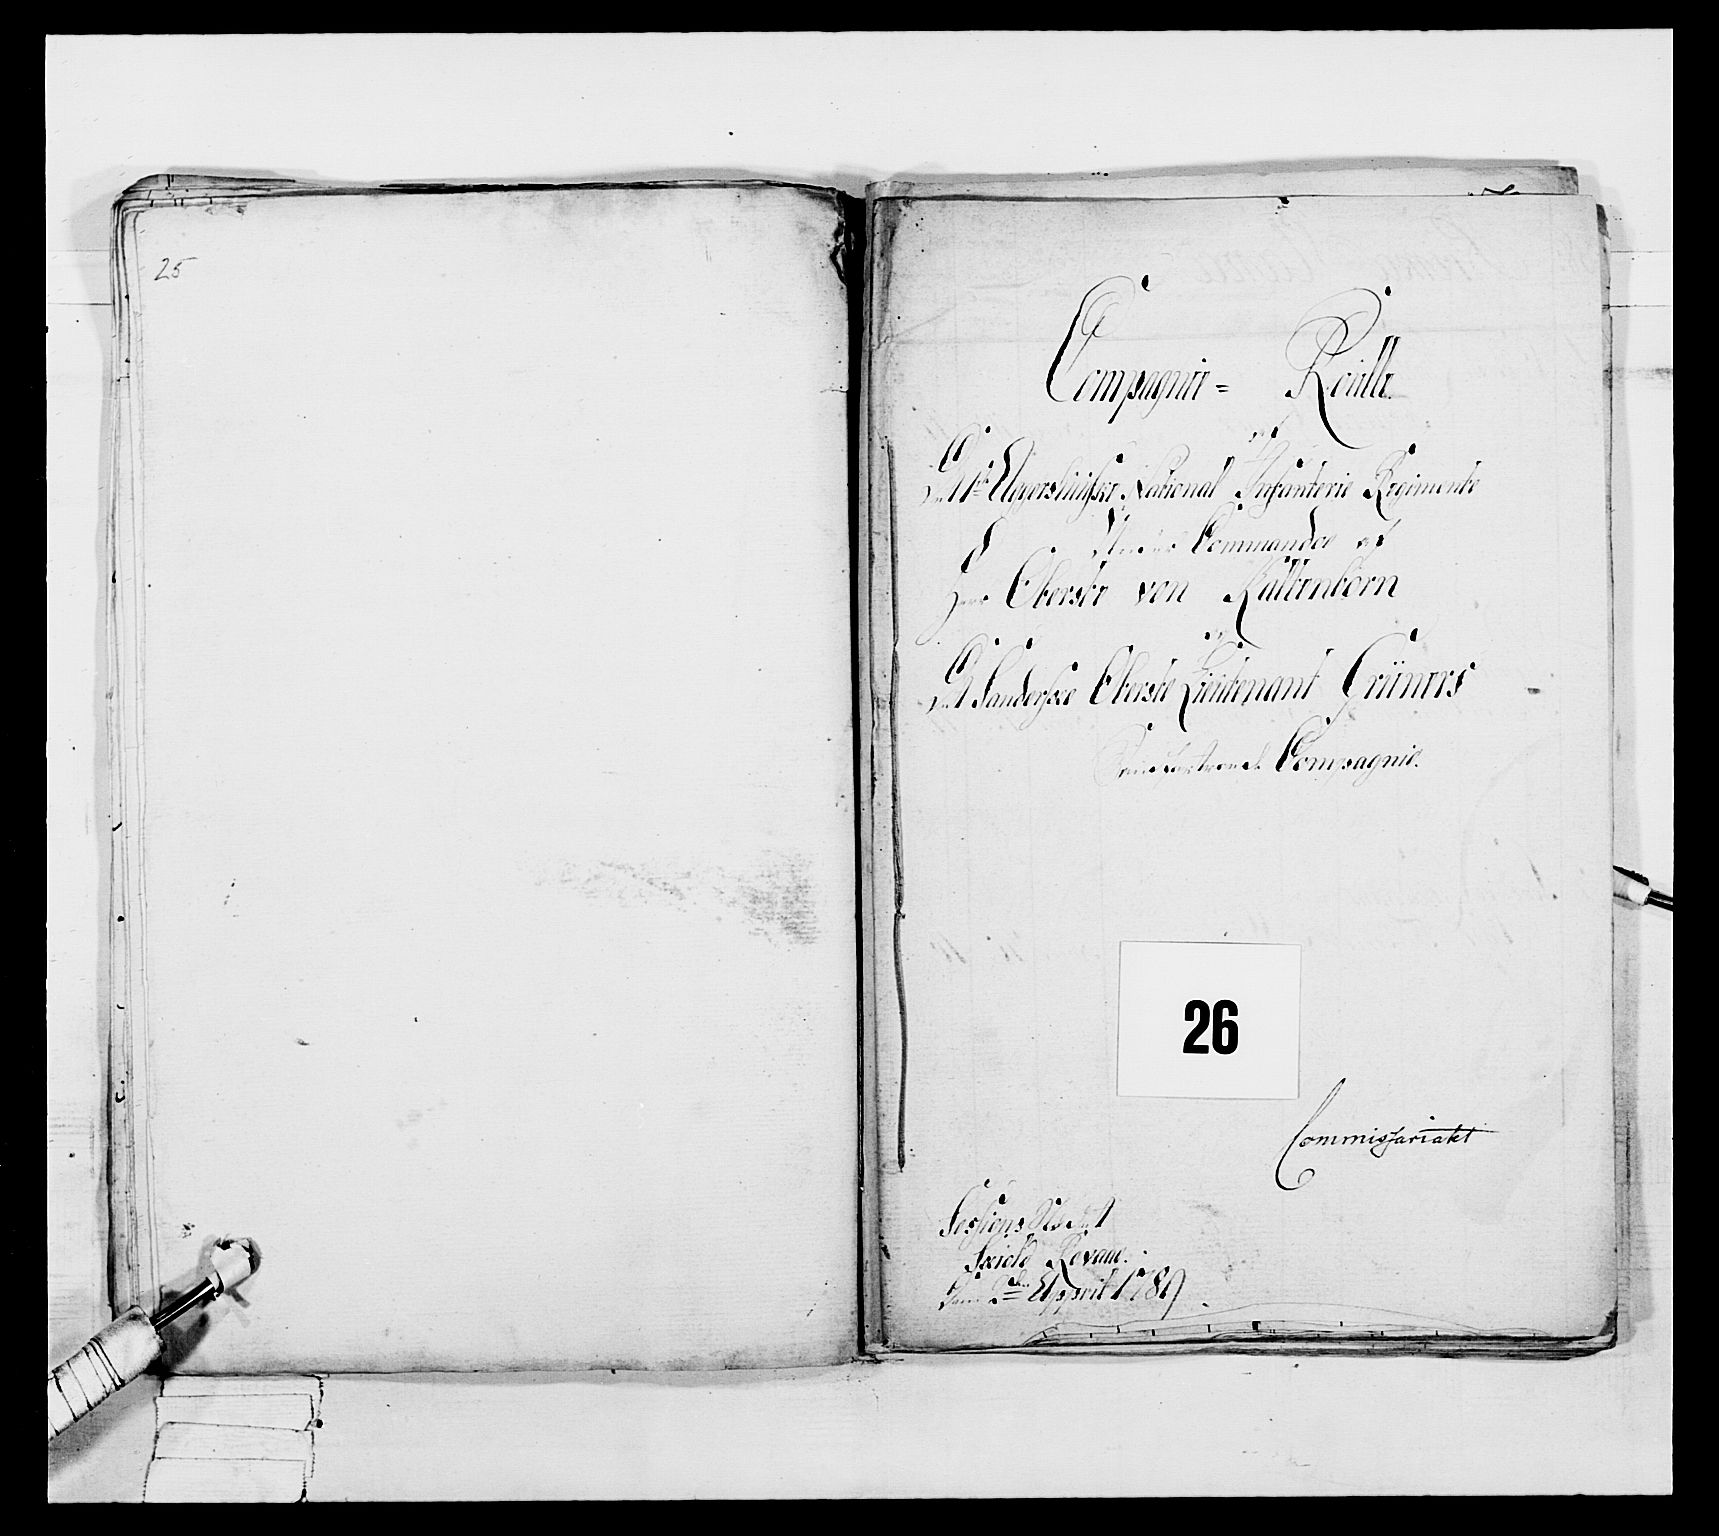 25
Compagnie- Roulle
af
Det 1ste Aggershuuske National Infanterie Regimente
Under Commando af
Herr Oberste von Kaltenborn
af
Det Sanderske Oberste Lieutenant Grüners
Compagnie.
26
Commissariatet
Sessions Stædet
Skiold Revam.
Dend 2den April 1789